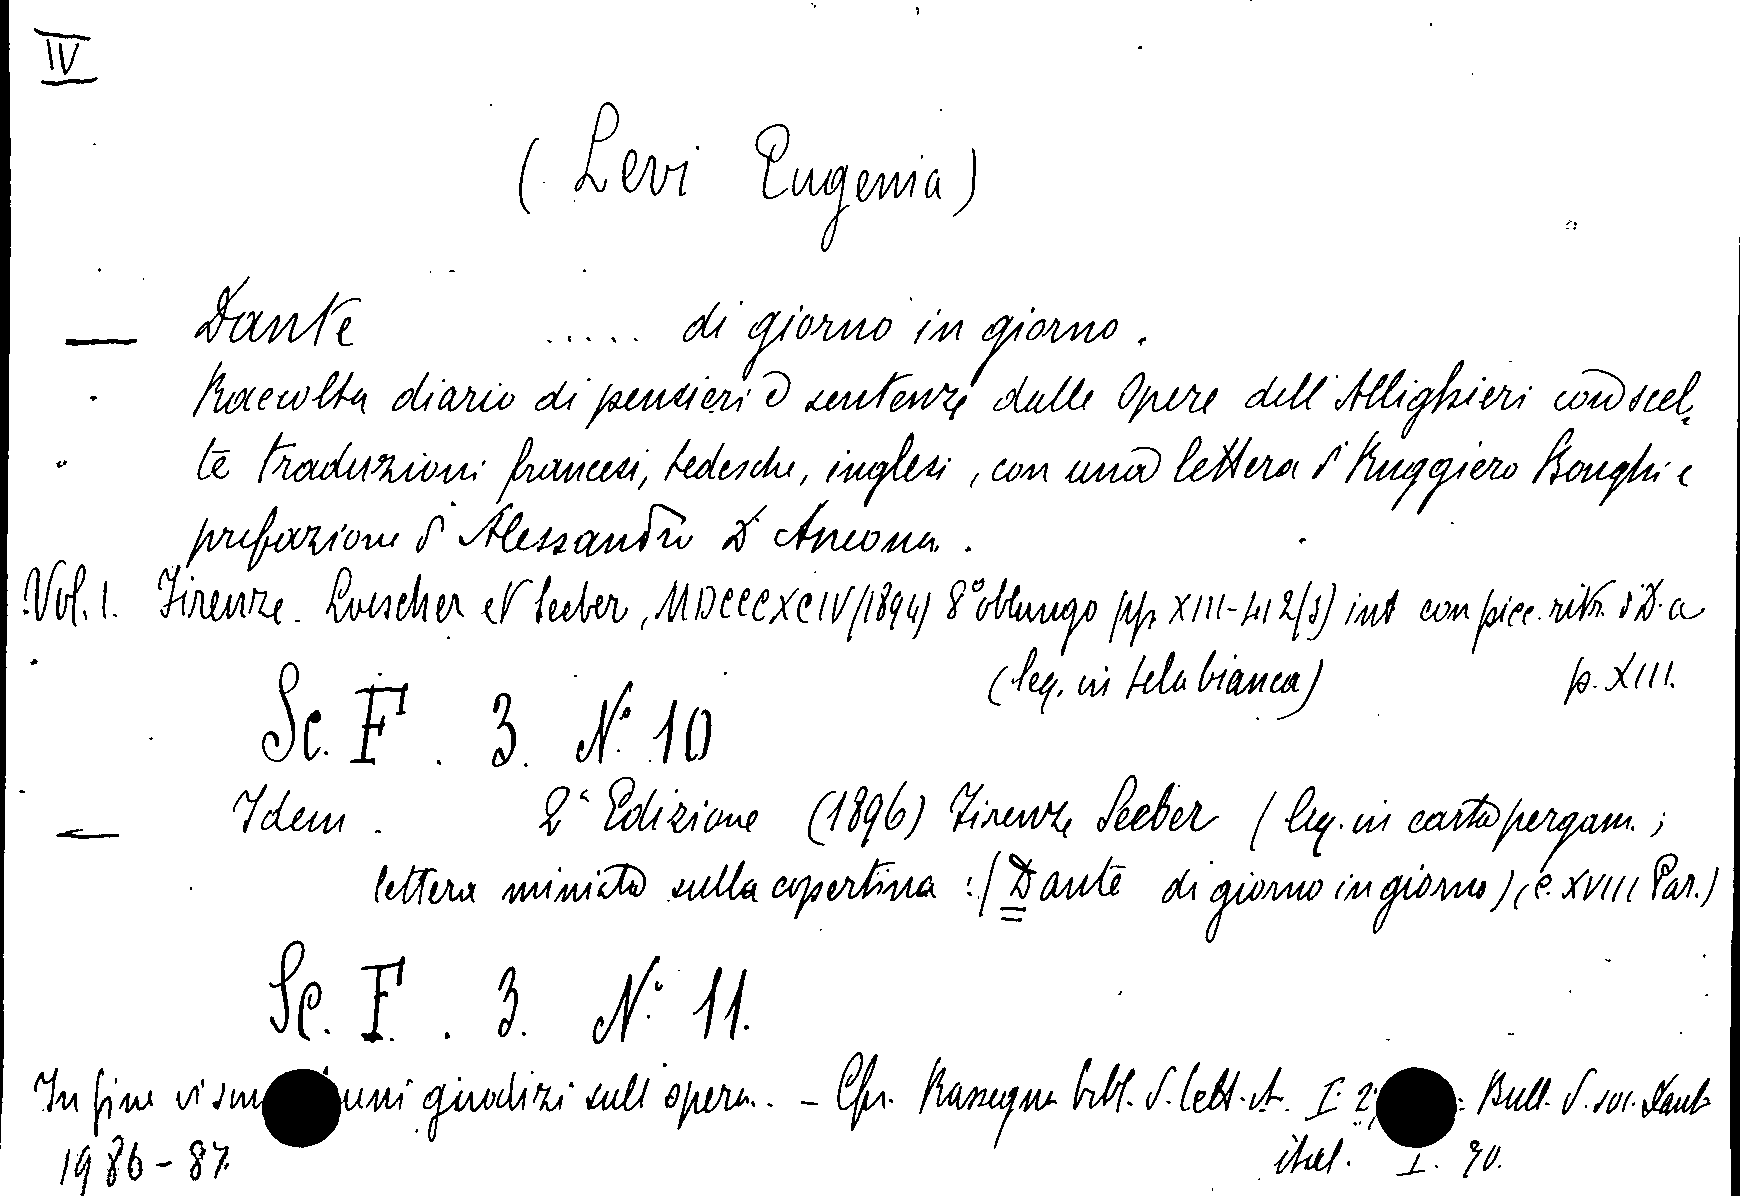 IV
(Levi Eugenia)
— Dante ..... di giorno in giorno.
Raccolta diario di pensieri e sentenze dalle Opere dell'Allighieri con scel-
te traduzioni francesi, tedesche, inglesi, con una lettera d' Ruggiero Bonghi e
prefazione d' Alessandro D'Ancona.
Vol. 1. Firenze. Loescher et Seeber, MDCCCXCIV (1894) 8° oblungo pp. XIII-412 (3) int con picc. ritr. d D. a
(leg. in tela bianca) p. XIII.
Sc. F. 3. N.° 10
— Idem. 2ª Edizione (1896) Firenze Seeber (leg. in carta pergam.;
lettera miniata sulla copertina : (Dante di giorno in giorno) (c. XVIII Par.)
Sc. F. 3. N.° 11.
In fine vi son uni giudizi sull'opera. - Cfr. Rassegna bibl. d. lett. it. I. 2, : Bull. d. soc. Dant.
1986-87. ital. I. 90.